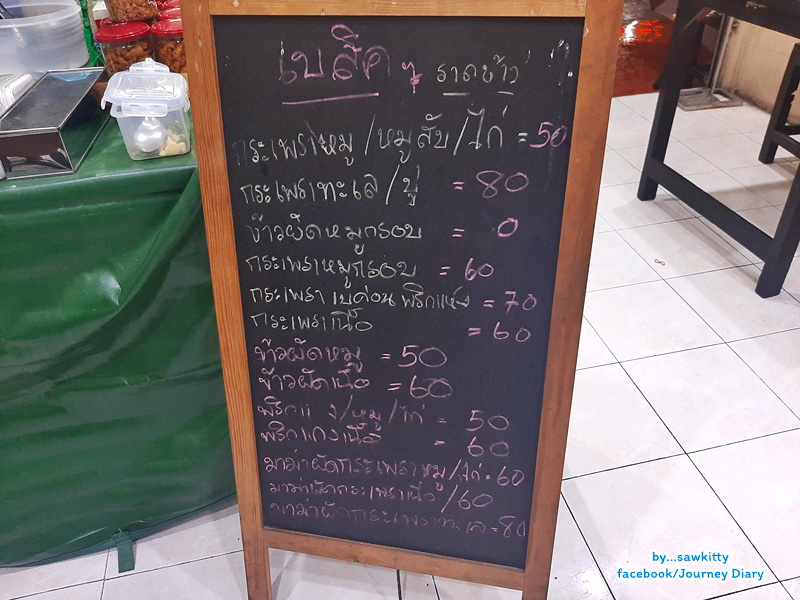 เบสิค ๆ ราดข้าว
กระเพราหมู/หมูสับ/ไก่ = 50
กระเพราทะเล/ปู = 80
ข้าวผัดหมูกรอบ = 0
กระเพราหมูกรอบ = 60
กระเพราเบค่อนพริกแห้ง = 70
กระเพราเนื้อ = 60
ข้าวผัดหมู = 50
ข้าวผัดเนื้อ = 60
/หมู/ไก่ = 50
พริกแกงเนื้อ = 60
มาม่าผัดกระเพราหมู/ไก่ = 60
มาม่าผัดกะเพราเนื้อ/60
มาม่าผัดกระเพราทะเล = 80
by...sawkitty
facebook/Journey Diary